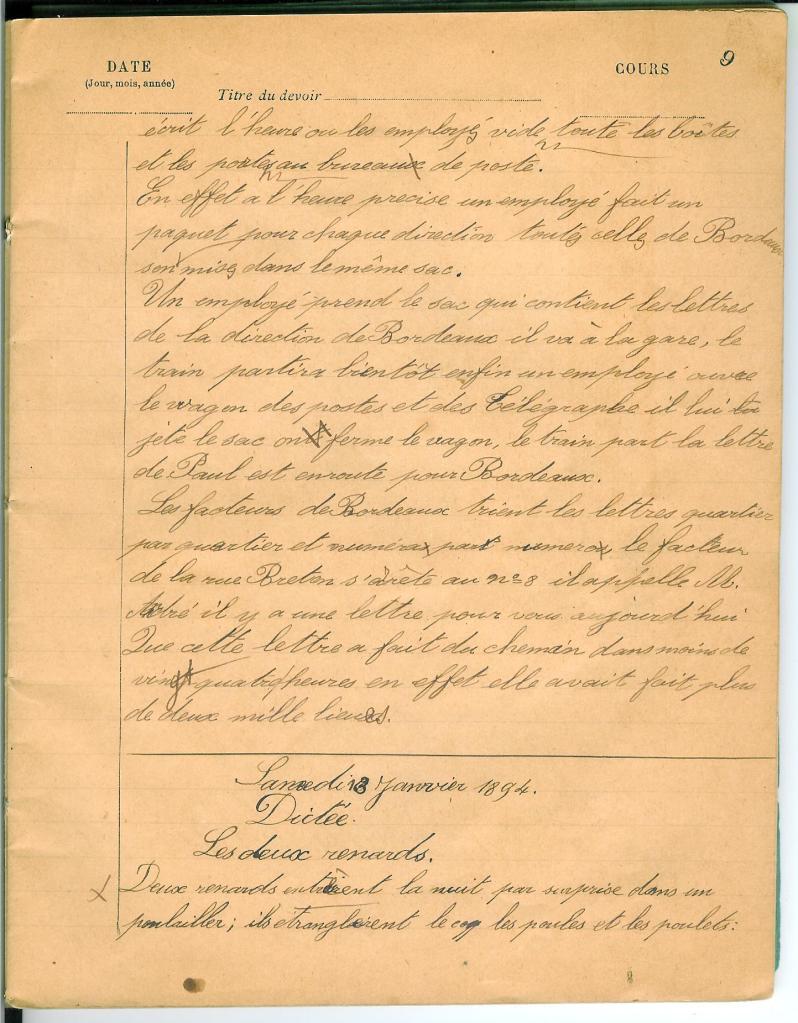 DATE
(Jour, mois, année)
Titre du devoir
COURS
9
écrit l'heure ou les employés vide toute les boîtes
et les portes au bureaux de poste.
En effet a l'heure precise un employé fait un
paquet pour chaque direction toutes celles de Bordeaux
son mises dans le même sac.
Un employé prend le sac qui contient les lettres
de la direction de Bordeaux il va à la gare, le
train partira bientôt enfin un employé ouvre
le wagon des postes et des Télégraphe il lui
jète le sac on ferme le vagon, le train part la lettre
de Paul est en route pour Bordeaux.
Les facteurs de Bordeaux trient les lettres quartier
par quartier et numéro par numero, le facteur
de la rue Breton s'arête au n° 8 il appelle M.
il y a une lettre pour vous aujourd'hui
Que cette lettre a fait du chemin dans moins de
vingt quatre heures en effet elle avait fait plus
de deux mille lieues.
Samedi 13 Janvier 1894.
Dictée.
Les deux renards.
Deux renards entrèrent la nuit par surprise dans un
poulailler; ils etranglerent le coq les poules et les poulets: